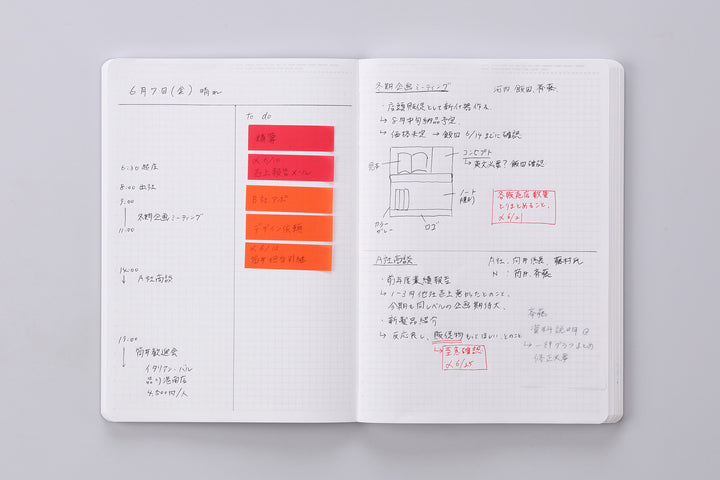 6月7日(金) 晴れ
To do
精算
〆6/10
売上報告メール
B社アポ
デザイン依頼
〆6/12
筒井担当引継
6:30 起床
8:00 出社
9:00
↓ 冬期企画ミーティング
11:00
14:00
↓ A社商談
19:00
↓ 筒井歓迎会
イタリアン・バル
品川港南店
4,500円/人
冬期企画ミーティング
河内、飯田、斉藤
・店頭販促として新什器作る
↳ 8月中旬納品予定。
↳ 価格未定 → 飯田 6/14までに確認
見本
コンセプト
↳ 英文必要? 飯田確認
ノート
カラー
グレー
ロゴ
各販売店数量
とりまとめること。
〆6/21
A社商談
A社: 向井係長、藤村氏
N : 筒井、斉藤
・前年度業績報告
↳ 1〜3月他社売上悪かったとのこと。
今期も同レベルの企画期待大。
・新製品紹介
↳ 反応良し、販促物もってほしい、とのこと
↳ 至急確認
〆6/25
斉藤
資料説明
→ 一部グラフまとめ
修正必要